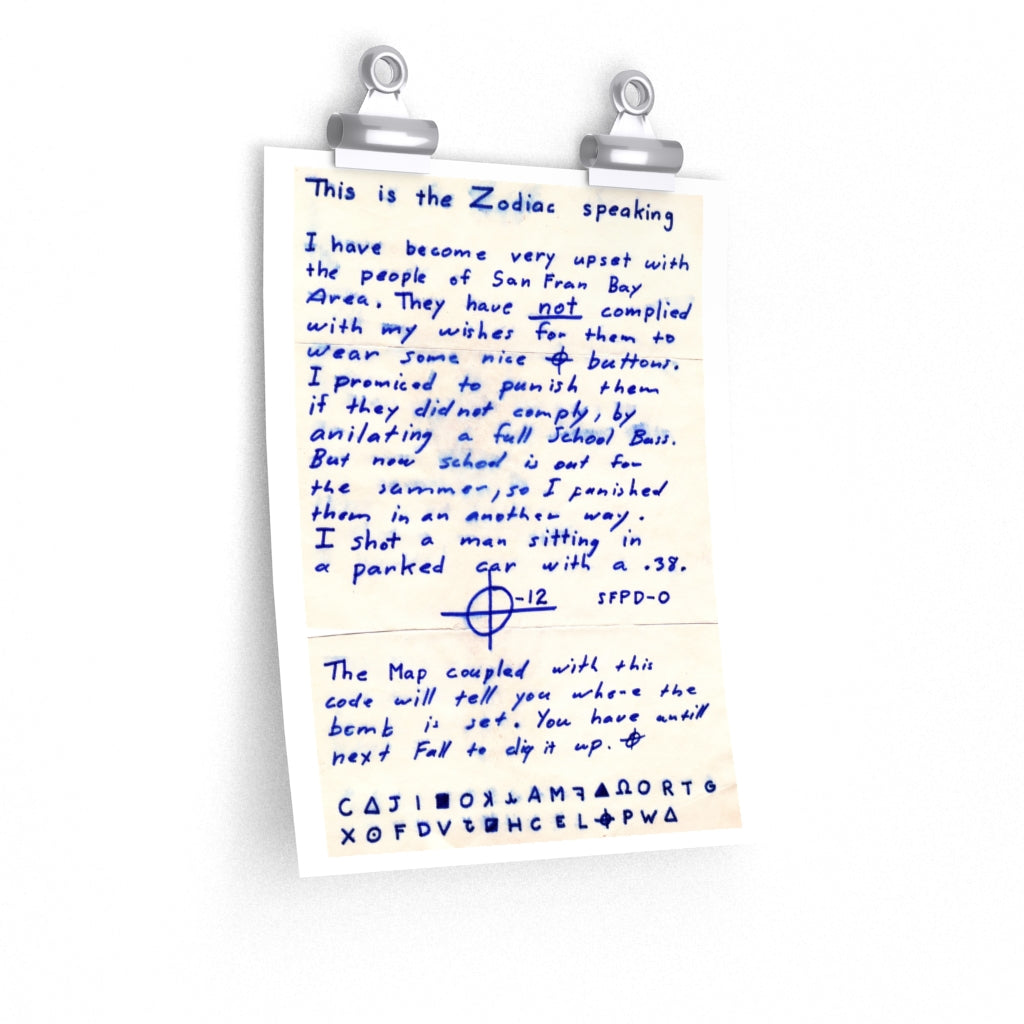 This is the Zodiac speaking
I have become very upset with
the people of San Fran Bay
Area. They have not complied
with my wishes for them to
wear some nice ⌖ buttons.
I promiced to punish them
if they did not comply, by
anilating a full School Buss.
But now school is out for
the summer, so I punished
them in an another way.
I shot a man sitting in
a parked car with a .38.
⌖-12 SFPD-0
The Map coupled with this
code will tell you where the
bomb is set. You have untill
next Fall to dig it up. ⌖
C Δ J I ■ O ꓘ ⅄ A M ꟻ ▲ Ω O R T G
X ⊙ F D V Ƨ ■ H C E L ⌖ P W Δ